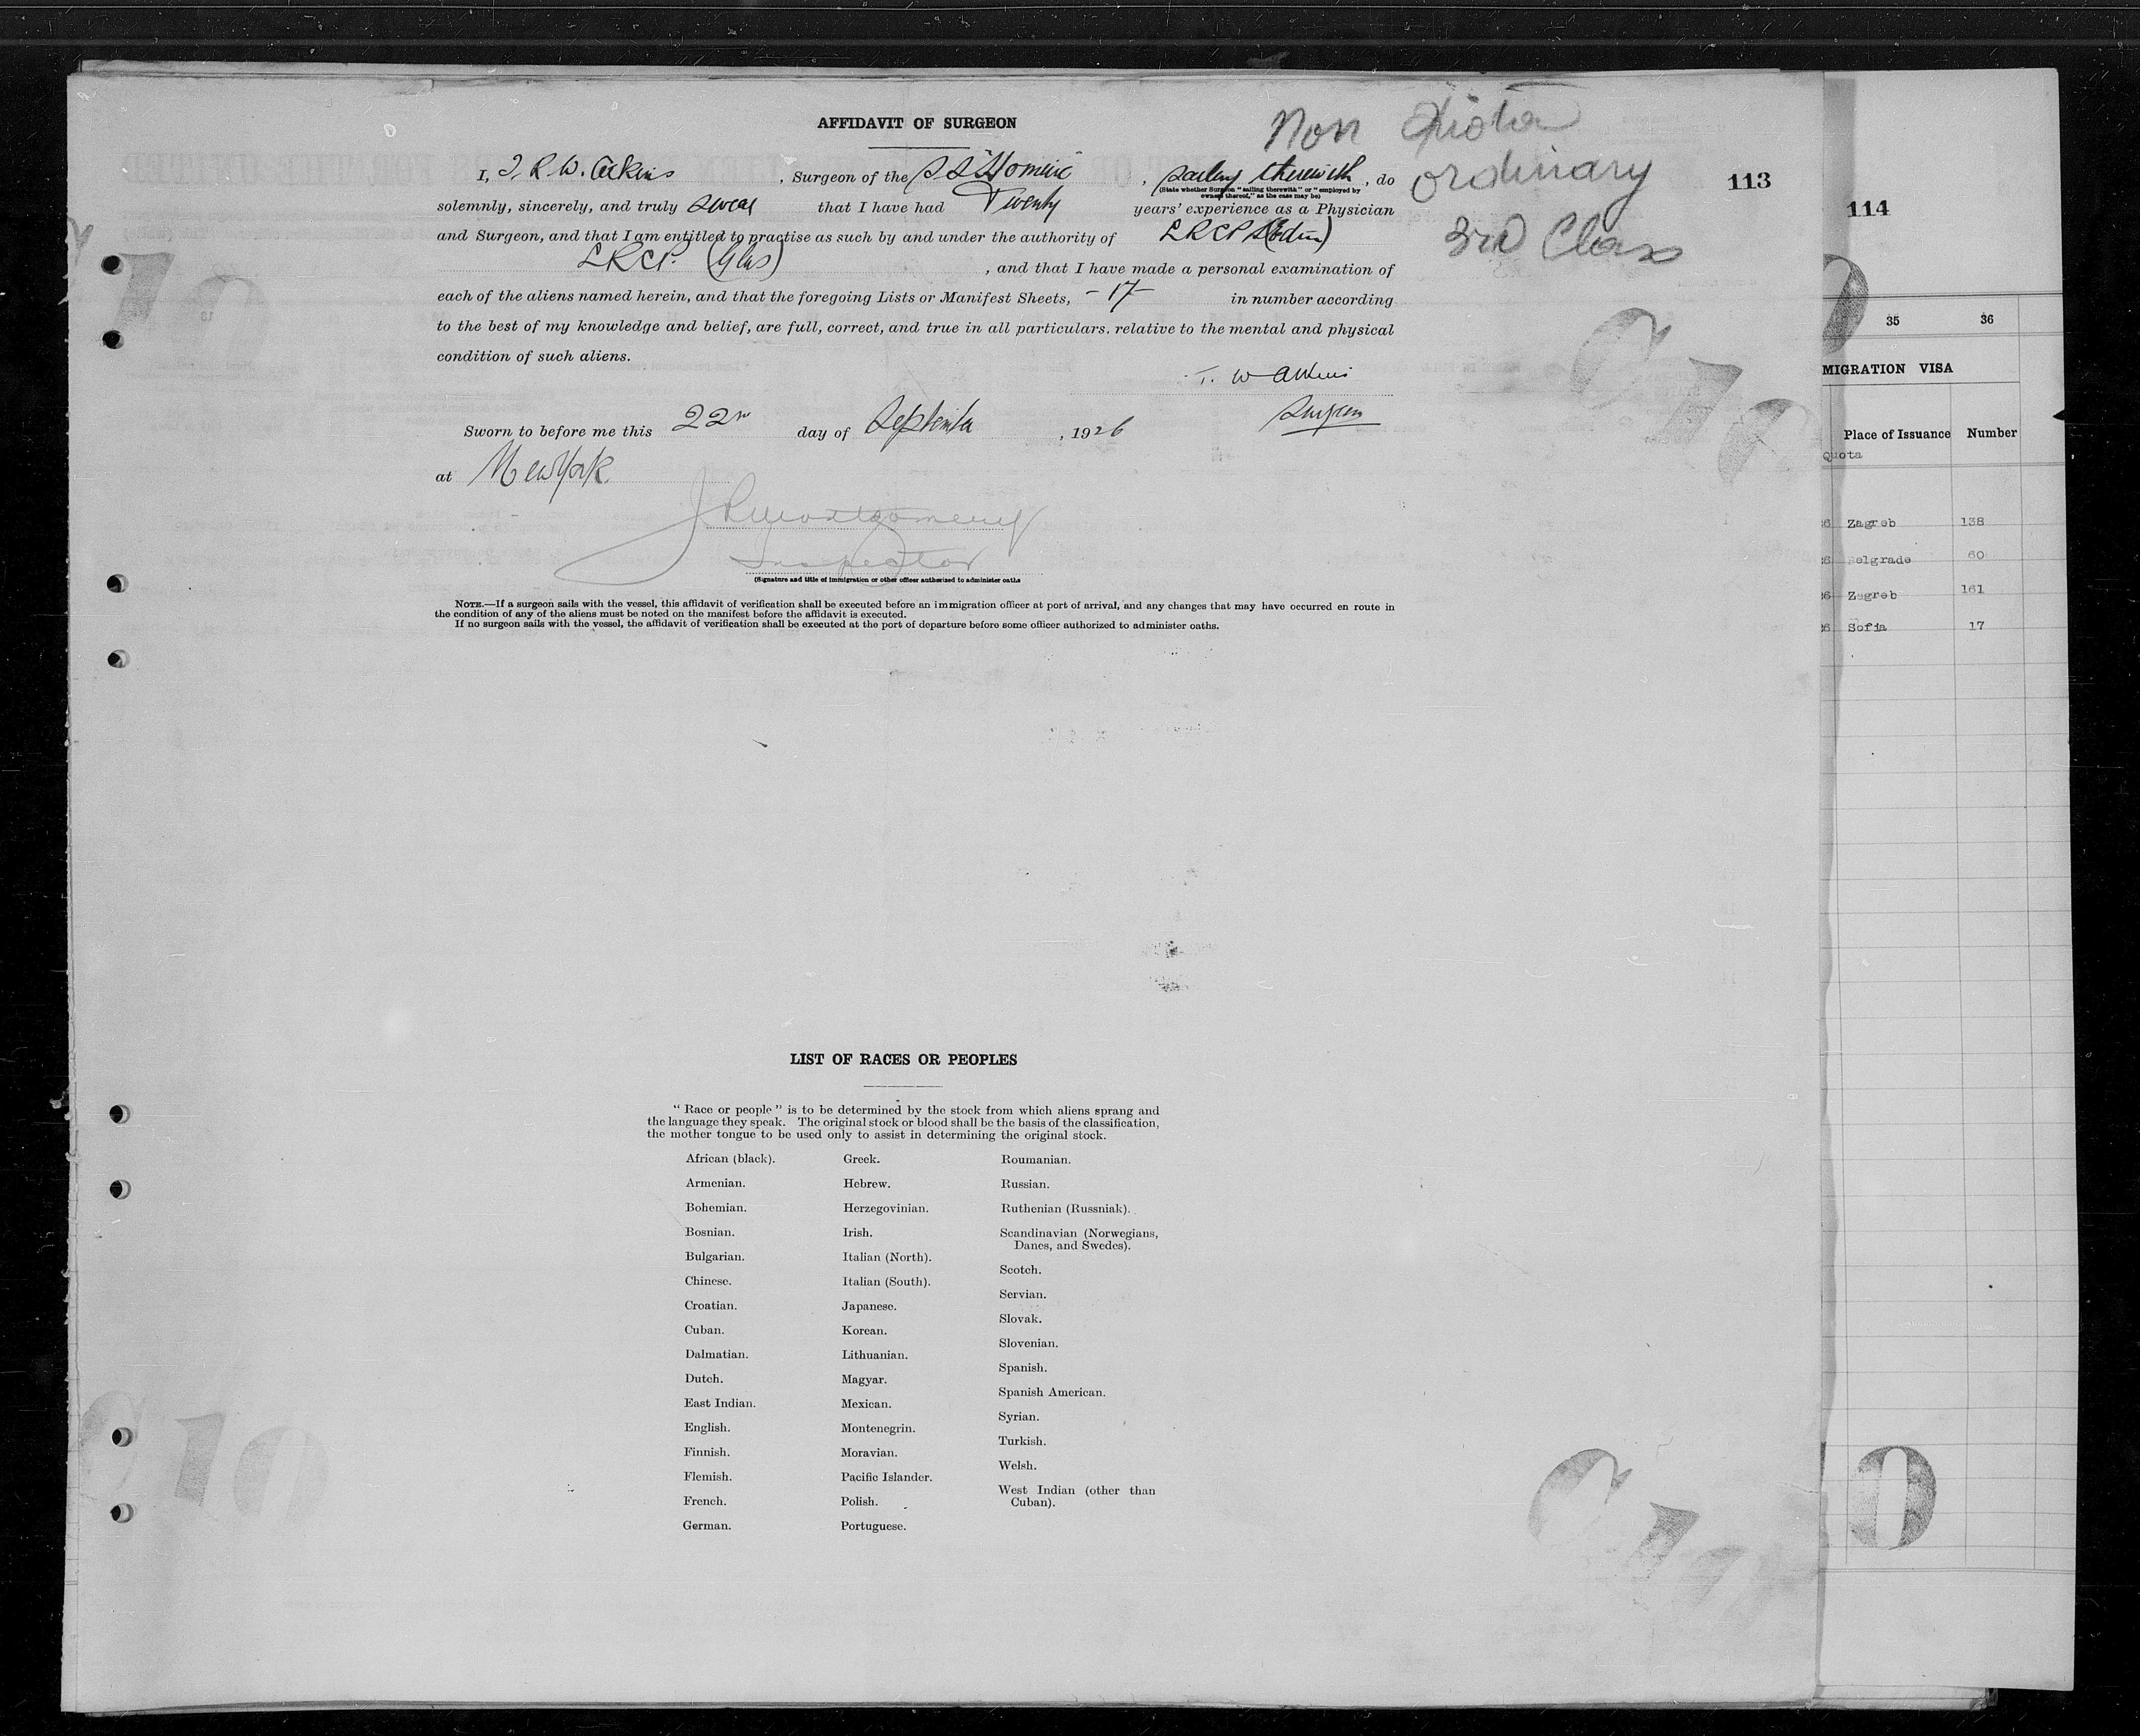 AFFIDAVIT OF SURGEON
Non Quota
ordinary
3rd Class
113
I, T. R. W. Atkins, Surgeon of the S S "Homeric", sailing therewith, do
(State whether Surgeon "sailing therewith" or "employed by
owners thereof," as the case may be)
solemnly, sincerely, and truly swear that I have had Twenty years' experience as a Physician
and Surgeon, and that I am entitled to practise as such by and under the authority of LRCP S(Edin)
LRCP. (Glas), and that I have made a personal examination of
each of the aliens named herein, and that the foregoing Lists or Manifest Sheets, -17- in number according
to the best of my knowledge and belief, are full, correct, and true in all particulars. relative to the mental and physical
condition of such aliens.
T. W Atkins
Surgeon
Sworn to before me this 22n day of September, 1926
at New York.
J R Montgomery
Inspector
(Signature and title of immigration or other officer authorized to administer oaths
NOTE.—If a surgeon sails with the vessel, this affidavit of verification shall be executed before an immigration officer at port of arrival, and any changes that may have occurred en route in
the condition of any of the aliens must be noted on the manifest before the affidavit is executed.
If no surgeon sails with the vessel, the affidavit of verification shall be executed at the port of departure before some officer authorized to administer oaths.
LIST OF RACES OR PEOPLES
"Race or people" is to be determined by the stock from which aliens sprang and
the language they speak. The original stock or blood shall be the basis of the classification,
the mother tongue to be used only to assist in determining the original stock.
African (black).
Armenian.
Bohemian.
Bosnian.
Bulgarian.
Chinese.
Croatian.
Cuban.
Dalmatian.
Dutch.
East Indian.
English.
Finnish.
Flemish.
French.
German.
Greek.
Hebrew.
Herzegovinian.
Irish.
Italian (North).
Italian (South).
Japanese.
Korean.
Lithuanian.
Magyar.
Mexican.
Montenegrin.
Moravian.
Pacific Islander.
Polish.
Portuguese.
Roumanian.
Russian.
Ruthenian (Russniak).
Scandinavian (Norwegians,
Danes, and Swedes).
Scotch.
Servian.
Slovak.
Slovenian.
Spanish.
Spanish American.
Syrian.
Turkish.
Welsh.
West Indian (other than
Cuban).
114
35 36
MIGRATION VISA
Place of Issuance Number
Quota
26 Zagreb 138
26 Belgrade 60
26 Zagreb 161
26 Sofia 17
0